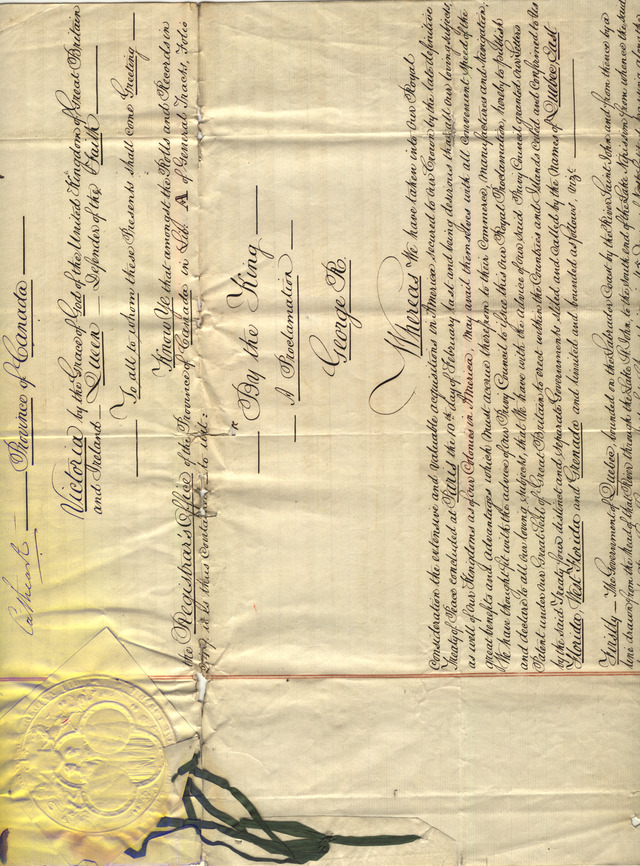 Cathcart
Province of Canada
Victoria by the Grace of God of the United Kingdom of Great Britain
and Ireland Queen Defender of the Faith
To all to whom these Presents shall come Greeting
Know Ye that amongst the Rolls and Records in
the Registrar's Office of the Province of Canada in Lib. A of General Tracts, Folio
it is thus contained to wit:
By the King
A Proclamation
George R.
Whereas We have taken into Our Royal
Consideration the extensive and valuable acquisitions in America secured to Our Crown by the late definitive
Treaty of Peace concluded at Paris the 10th day of February last and being desirous that all Our loving subjects,
as well of Our Kingdoms as of our Colonies in America, may avail themselves with all convenient speed of the
great benefits and advantages which must accrue therefrom to their Commerce, Manufactures and Navigation,
We have thought fit with the advice of our Privy Council to issue this our Royal Proclamation, hereby to publish
and declare to all our loving subjects, that We have with the advice of our said Privy Council granted our Letters
Patent under our Great Seal of Great Britain to erect within the Countries and Islands ceded and confirmed to Us
by the said Treaty four distinct and separate Governments stiled and called by the Names of Quebec East
Florida West Florida and Grenada and limited and bounded as follows, vizt
Firstly The Government of Quebec bounded on the Labrador Coast by the River Saint John and from thence by a
line drawn from the head of that River through the Lake St. John, to the south end of the Lake Nipissim from whence the said